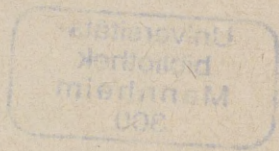 Universitäts-
bibliothek
Mannheim